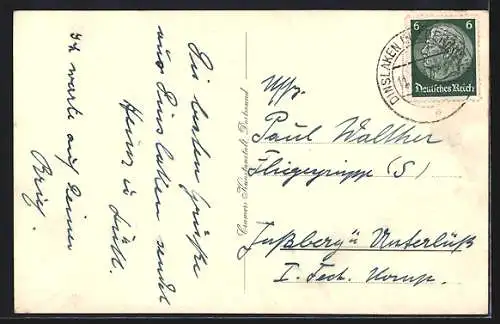 Die besten Grüße
aus Dinslaken sendet
Heinz u. Lull.
Ich warte auf Deinen
Brief.
Cramers Kunstanstalt, Dortmund
DINSLAKEN
6 6
Deutsches Reich
Uffz.
Paul Walther
Fliegergruppe (S)
Faßberg ü. Unterlüß
I. Tech. Komp.